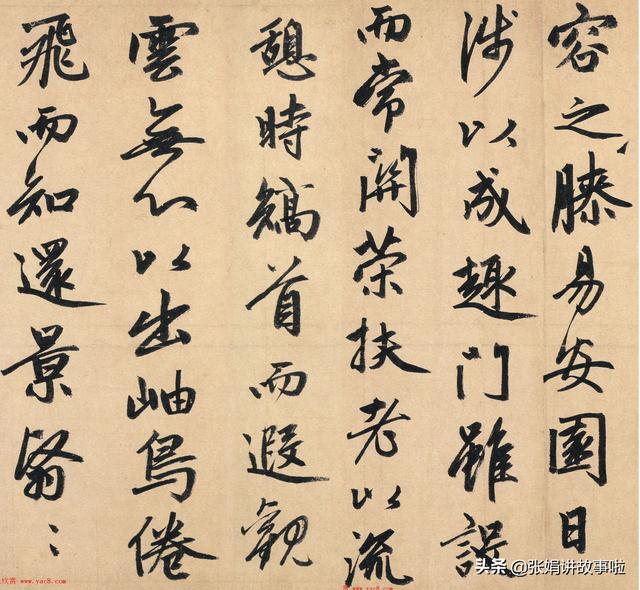 容之膝易安園日
涉以成趣門雖設
而常開策扶老以流
憩時矯首而遐觀
雲無心以出岫鳥倦
飛而知還景翳〻
欣赏 www.yac8.com
头条 @张娟讲故事啦